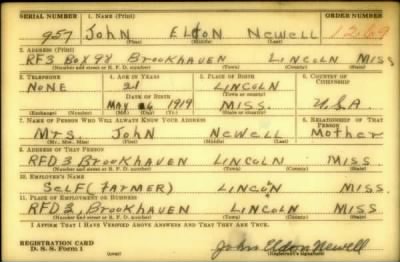 SERIAL NUMBER 1. Name (Print) ORDER NUMBER
957 John Elton Newell 1269
(First) (Middle) (Last)
2. Address (Print)
RF3 Box 92 Brookhaven Lincoln Miss
(Number and street or R. F. D. number) (Town) (County) (State)
3. Telephone 4. Age in Years 5. Place of Birth 6. Country of Citizenship
None 21 Lincoln
Date of Birth (Town or county)
May 26 1919 Miss. USA
(Exchange) (Number) (Mo.) (Day) (Yr.) (State or country)
7. Name of Person Who Will Always Know Your Address 8. Relationship of That Person
Mrs. John Newell Mother
(Mr., Mrs., Miss) (First) (Middle) (Last)
9. Address of That Person
RFD 3 Brookhaven Lincoln Miss.
(Number and street or R. F. D. number) (Town) (County) (State)
10. Employer's Name
Self (Farmer) Lincoln Miss.
11. Place of Employment or Business
RFD 3 Brookhaven Lincoln Miss.
(Number and street or R. F. D. number) (Town) (County) (State)
I Affirm That I Have Verified Above Answers and That They Are True.
REGISTRATION CARD
D. S. S. Form 1 (over) John Eldon Newell
(Registrant's signature)